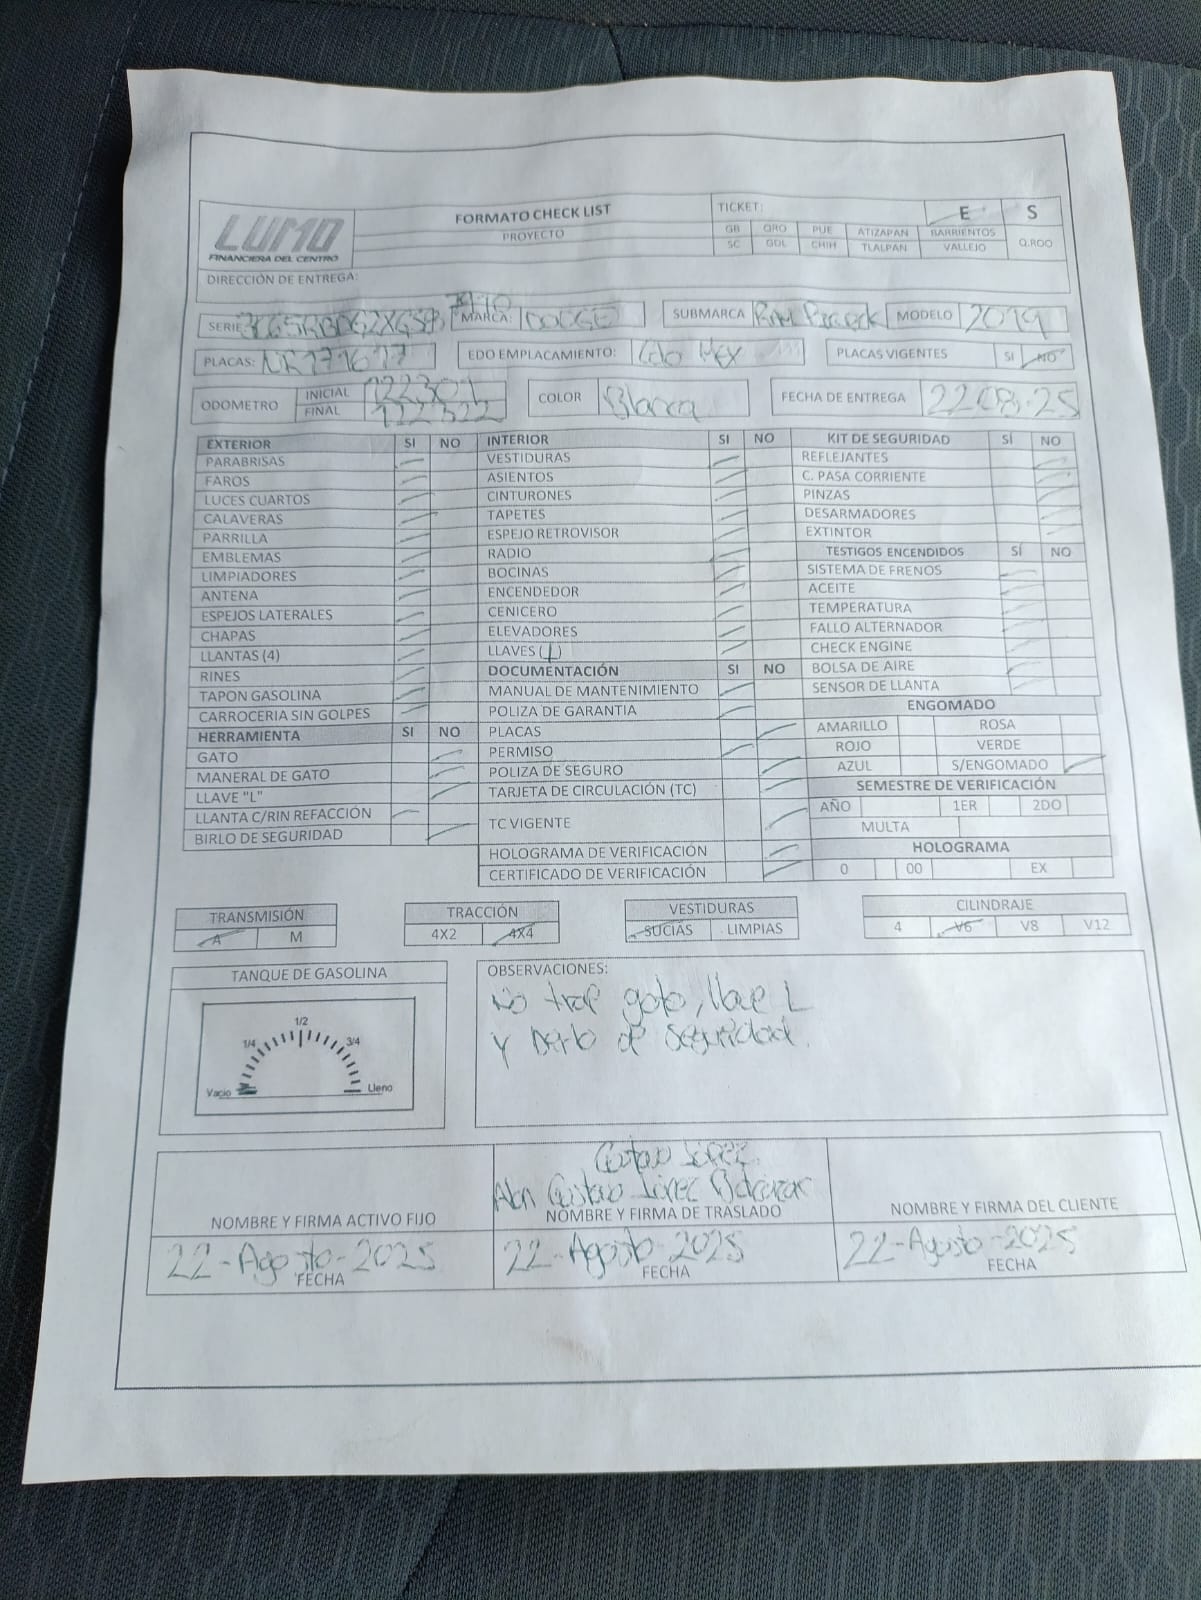 LUMO
FINANCIERA DEL CENTRO
FORMATO CHECK LIST
PROYECTO
TICKET:
E S
GB QRO PUE ATIZAPAN BARRIENTOS
SC GDL CHIH TLALPAN VALLEJO Q.ROO
DIRECCIÓN DE ENTREGA:
SERIE MARCA: DODGE SUBMARCA RAM MODELO 2019
PLACAS: EDO EMPLACAMIENTO: Edo Mex PLACAS VIGENTES SI NO
ODOMETRO INICIAL 122301 COLOR Blanca FECHA DE ENTREGA 22 08 25
FINAL 122322
EXTERIOR SI NO INTERIOR SI NO KIT DE SEGURIDAD SÍ NO
PARABRISAS VESTIDURAS REFLEJANTES
FAROS ASIENTOS C. PASA CORRIENTE
LUCES CUARTOS CINTURONES PINZAS
CALAVERAS TAPETES DESARMADORES
PARRILLA ESPEJO RETROVISOR EXTINTOR
EMBLEMAS RADIO TESTIGOS ENCENDIDOS SÍ NO
LIMPIADORES BOCINAS SISTEMA DE FRENOS
ANTENA ENCENDEDOR ACEITE
ESPEJOS LATERALES CENICERO TEMPERATURA
CHAPAS ELEVADORES FALLO ALTERNADOR
LLANTAS (4) LLAVES (1) CHECK ENGINE
RINES DOCUMENTACIÓN SI NO BOLSA DE AIRE
TAPON GASOLINA MANUAL DE MANTENIMIENTO SENSOR DE LLANTA
CARROCERIA SIN GOLPES POLIZA DE GARANTIA ENGOMADO
HERRAMIENTA SI NO PLACAS AMARILLO ROSA
GATO PERMISO ROJO VERDE
MANERAL DE GATO POLIZA DE SEGURO AZUL S/ENGOMADO
LLAVE "L" TARJETA DE CIRCULACIÓN (TC) SEMESTRE DE VERIFICACIÓN
LLANTA C/RIN REFACCIÓN TC VIGENTE AÑO 1ER 2DO
BIRLO DE SEGURIDAD MULTA
HOLOGRAMA DE VERIFICACIÓN HOLOGRAMA
CERTIFICADO DE VERIFICACIÓN 0 00 EX
TRANSMISIÓN TRACCIÓN VESTIDURAS CILINDRAJE
A M 4X2 4X4 SUCIAS LIMPIAS 4 V6 V8 V12
TANQUE DE GASOLINA OBSERVACIONES:
No trae gato, llave L
y berlo de seguridad.
1/2
1/4 3/4
Vacio Lleno
Gustavo López
Alan Gustavo López
NOMBRE Y FIRMA ACTIVO FIJO NOMBRE Y FIRMA DE TRASLADO NOMBRE Y FIRMA DEL CLIENTE
22-Agosto-2025 22-Agosto-2025 22-Agosto-2025
FECHA FECHA FECHA